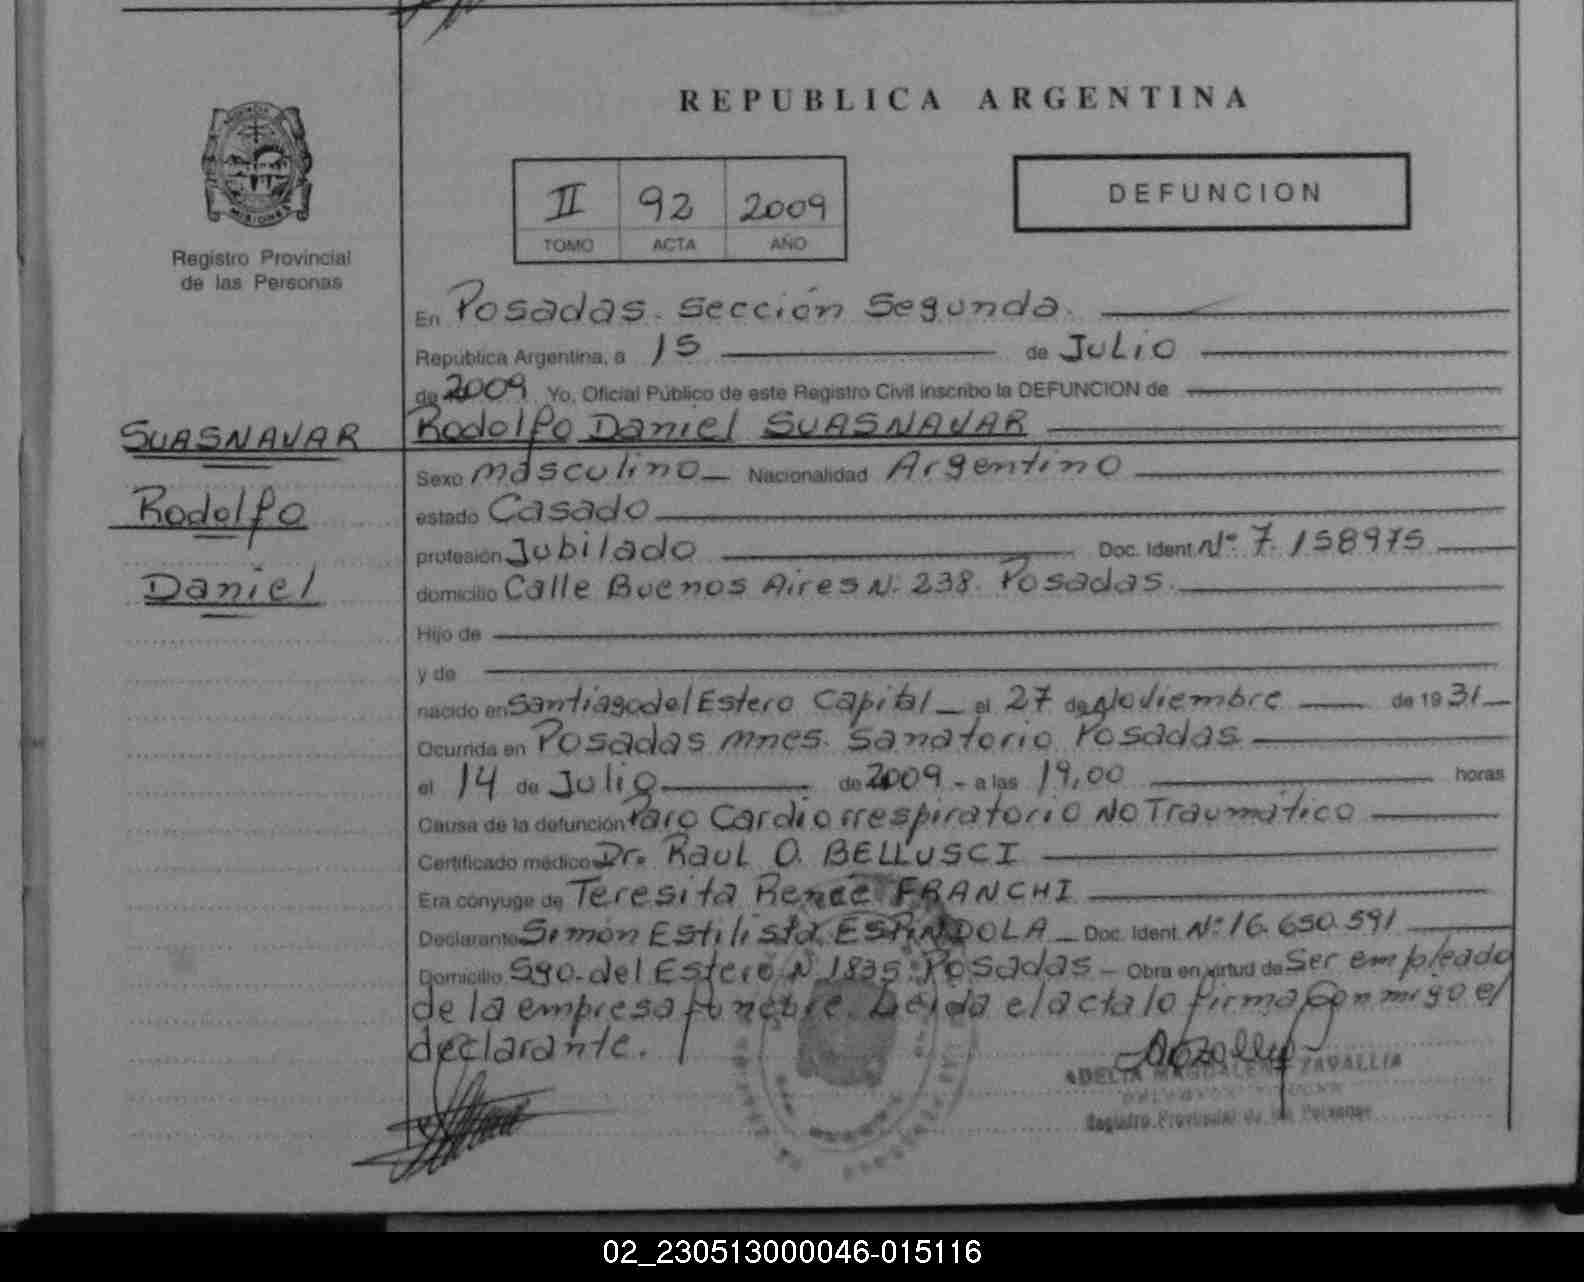 REPUBLICA ARGENTINA
II 92 2009
TOMO ACTA AÑO
DEFUNCION
MISIONES
Registro Provincial
de las Personas
En Posadas. Sección Segunda.
República Argentina, a 15 de Julio
de 2009 Yo, Oficial Público de este Registro Civil inscribo la DEFUNCION de
Rodolfo Daniel SUASNAVAR
SUASNAVAR
Rodolfo
Daniel
Sexo masculino Nacionalidad Argentino
estado Casado
profesión Jubilado Doc. Ident. Nº 7.158975
domicilio Calle Buenos Aires N. 238. Posadas.
Hijo de
y de
nacido en Santiago del Estero Capital el 27 de Noviembre de 1931
Ocurrida en Posadas Mnes. Sanatorio Posadas.
el 14 de Julio de 2009 - a las 19,00 horas
Causa de la defunción Paro Cardiorrespiratorio No Traumático
Certificado médico Dr. Raul O. BELLUSCI
Era cónyuge de Teresita Renée FRANCHI
Declarante Simón Estilista ESPINDOLA Doc. Ident. Nº 16.650.591
Domicilio Sgo. del Estero N 1835. Posadas - Obra en virtud de Ser empleado
de la empresa fúnebre. Leida el acta lo firma conmigo el
declarante.
ADELIA MAGDALENA ZAVALLIA
Registro Provincial de las Personas
02_230513000046-015116